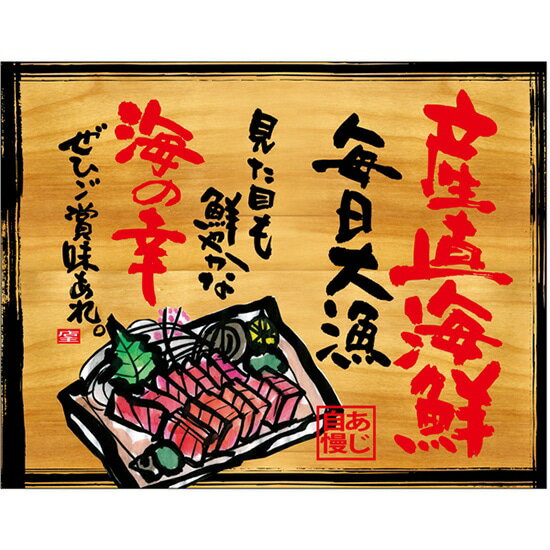 産直海鮮
毎日大漁
見た目も
鮮やかな
海の幸
ぜひご賞味あれ。
あじ
自慢